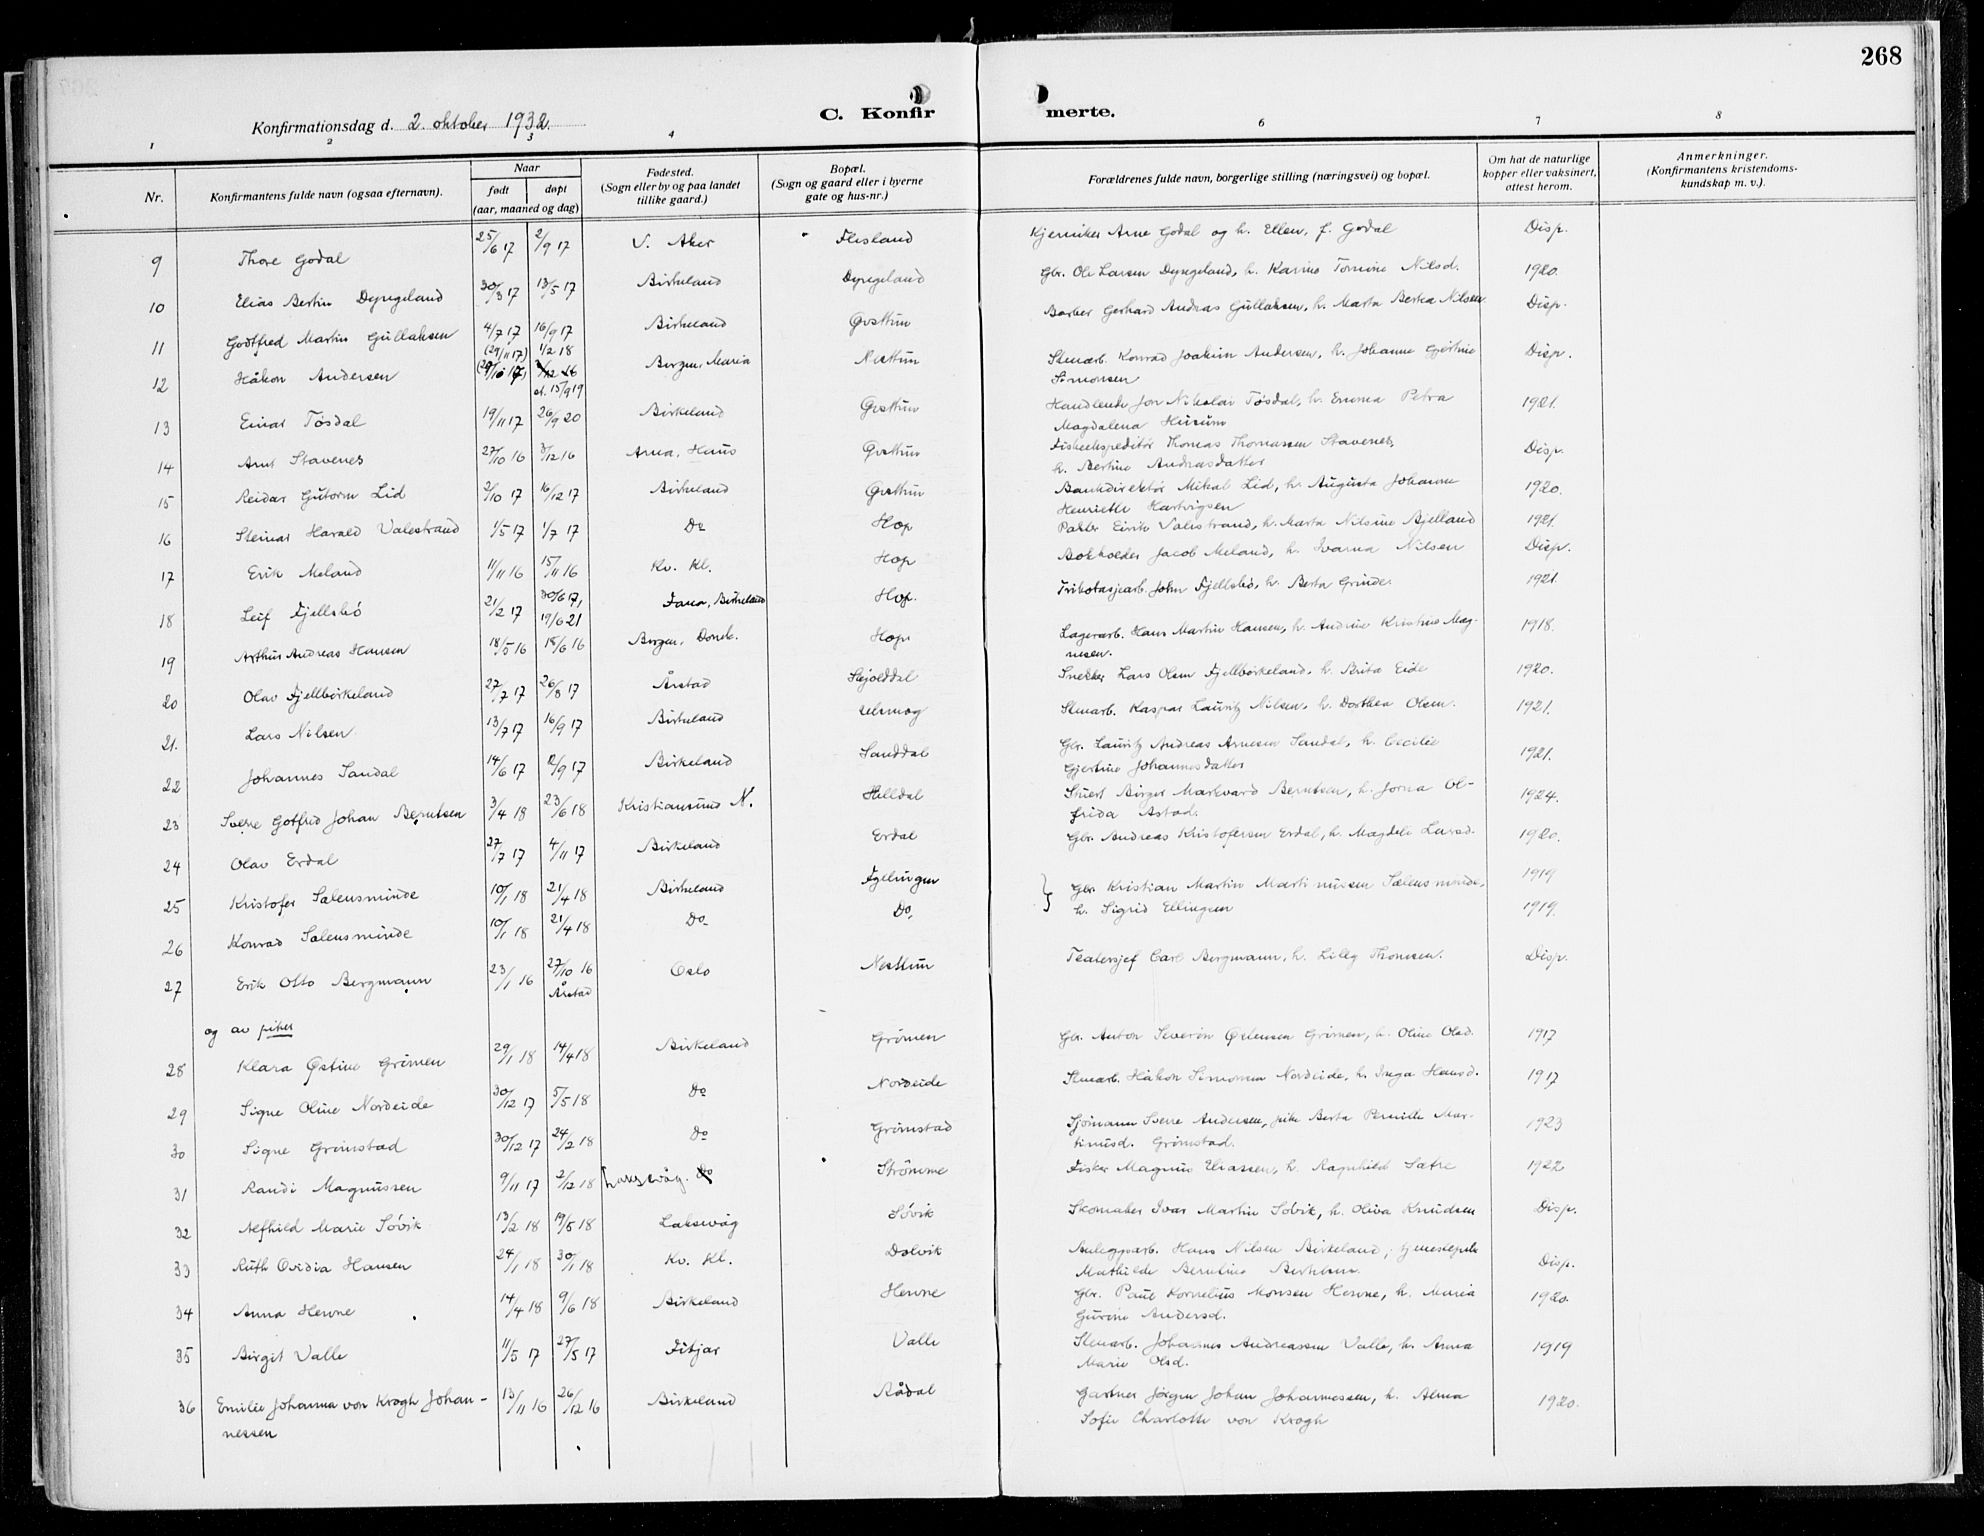 268
Konfirmationsdag d. 2. oktober 1932.
C. Konfirmerte.
1 2 3 4 6 7 8
Nr.
Konfirmantens fulde navn (ogsaa efternavn).
Naar
født døpt
(aar, maaned og dag)
Fødested.
(Sogn eller by og paa landet
tillike gaard.)
Bopæl.
(Sogn og gaard eller i byerne
gate og hus-nr.)
Forældrenes fulde navn, borgerlige stilling (næringsvei) og bopæl.
Om hat de naturlige
kopper eller vaksinert,
attest herom.
Anmerkninger.
(Konfirmantens kristendoms-
kundskap m. v.).
9 Thore Godal 25/6 17 2/9 17 V. Aker Flesland Kjemiker Arne Godal og h. Ellen, f. Godal Disp.
10 Elias Bertin Dyngeland 30/3 17 13/5 17 Birkeland Dyngeland Gbr. Ole Larsen Dyngeland, h. Karine Tomine Nilsd. 1920.
11 Godtfred Martin Gullaksen 4/7 17 16/9 17 Birkeland Øvsttun Barber Gerhard Andreas Gullaksen, h. Marta Berka Nilsen Disp.
12 Håkon Andersen (29/11 17) 1/2 18 Bergen, Maria Nesttun Stenarb. Konrad Joakim Andersen, h. Johanne Gjertine Disp.
st. 15/9 19 Simonsen
13 Einar Tøsdal 19/11 17 26/9 20 Birkeland Øvsttun Handlende Jon Nikolai Tøsdal, h. Emma Petra 1921.
Magdalena Husum
14 Arnt Stavenes 27/10 16 3/12 16 Arna, Haus Øvsttun Fiskeekspeditør Thomas Thomassen Stavenes, Disp.
h. Bertine Andreasdatter
15 Reidar Gutorm Lid 2/10 17 16/12 17 Birkeland Øvsttun Bankdirektør Mikal Lid, h. Augusta Johanne 1920.
Henriette Hartvigsen
16 Steinar Harald Valestrand 1/5 17 1/7 17 Do Hop Pakker Eirik Valestrand, h. Marta Nilsine Bjelland 1921.
17 Erik Meland 11/11 16 15/11 16 Kv. Kl. Hop Bokholder Jacob Meland, h. Ivarna Nilsen Disp.
18 Leif Fjellsbø 21/2 17 30/6 17, Fana, Birkeland Hop. Trikotasjearb. John Fjellsbø, h. Berta Grinde. 1921.
19/6 21
19 Arthur Andreas Hansen 18/5 16 18/6 16 Bergen, Domk. Hop Lagerarb. Hans Martin Hansen, h. Andrine Kristine Mag- 1918.
nesen.
20 Olav Fjellbirkeland 27/7 17 26/8 17 Årstad Skjolddal Snekker Lars Olsen Fjellbirkeland, h. Brita Eide 1920.
21. Lars Nilsen 13/7 17 16/9 17 Birkeland Helsmog Stenarb. Kaspar Lauritz Nilsen, h. Dorthea Olsen. 1921.
22 Johannes Sandal 14/6 17 2/9 17 Birkeland Sanddal Gbr. Lauritz Andreas Arnesen Sandal, h. Cecilie 1921.
Gjertine Johannesdatter
23 Sverre Gotfred Johan Berntsen 3/4 18 23/6 18 Kristiansund N. Helldal Stuert Birger Markvard Berntsen, h. Jorna Ol- 1924.
frida Astad.
24 Olav Erdal 27/7 17 4/11 17 Birkeland Erdal Gbr. Andreas Kristofersen Erdal, h. Magdeli Larsd. 1920.
25 Kristofer Sælensminde 10/1 18 21/4 18 Birkeland Fyllingen Gbr. Kristian Martin Martinussen Sælensminde, 1919
26 Konrad Sælensminde 10/1 18 21/4 18 Do Do h. Sigrid Ellingsen 1919.
27 Erik Otto Bergmann 23/1 16 27/10 16 Oslo Nesttun Teatersjef Carl Bergmann, h. Lilly Thomsen. Disp.
Årstad
og av piker
28 Klara Østine Grimen 29/1 18 14/4 18 Birkeland Grimen Gbr. Anton Severin Østensen Grimen, h. Oline Olsd. 1917
29 Signe Oline Nordeide 30/12 17 5/5 18 Do Nordeide Stenarb. Håkon Simonsen Nordeide, h. Inga Hansd. 1917
30 Signe Grimstad 30/12 17 24/2 18 Do Grimstad Sjømann Sverre Andersen, pike Berta Pernille Mar- 1923
tinusd. Grimstad.
31 Randi Magnussen 9/11 17 2/12 18 Laksevåg. Do Strømme Fisker Magnus Eliassen, h. Ragnhild Sætre 1922
32 Alfhild Marie Søvik 13/2 18 19/5 18 Laksevåg Søvik Skomaker Ivar Martin Søvik, h. Oliva Knudsen Disp.
33 Ruth Ovidia Hansen 24/1 18 30/1 18 Kv. Kl. Dolvik Anleggsarb. Hans Nilsen Birkeland, tjenestepike Disp.
Mathilde Berntine Bertelsen.
34 Anna Hervne 14/4 18 9/6 18 Birkeland Hervne Gbr. Paul Kornelius Monsen Hervne, h. Maria 1920.
Gurine Andersd.
35 Birgit Valle 11/5 17 27/5 17 Fitjar Valle Stenarb. Johannes Andreassen Valle, h. Anna 1919
Marie Olsd.
36 Emilie Johanna von Krogh Johan- 13/11 16 26/12 16 Birkeland Rådal Gartner Jørgen Johan Johannessen, h. Alma 1920.
nessen Sofie Charlotte von Krogh